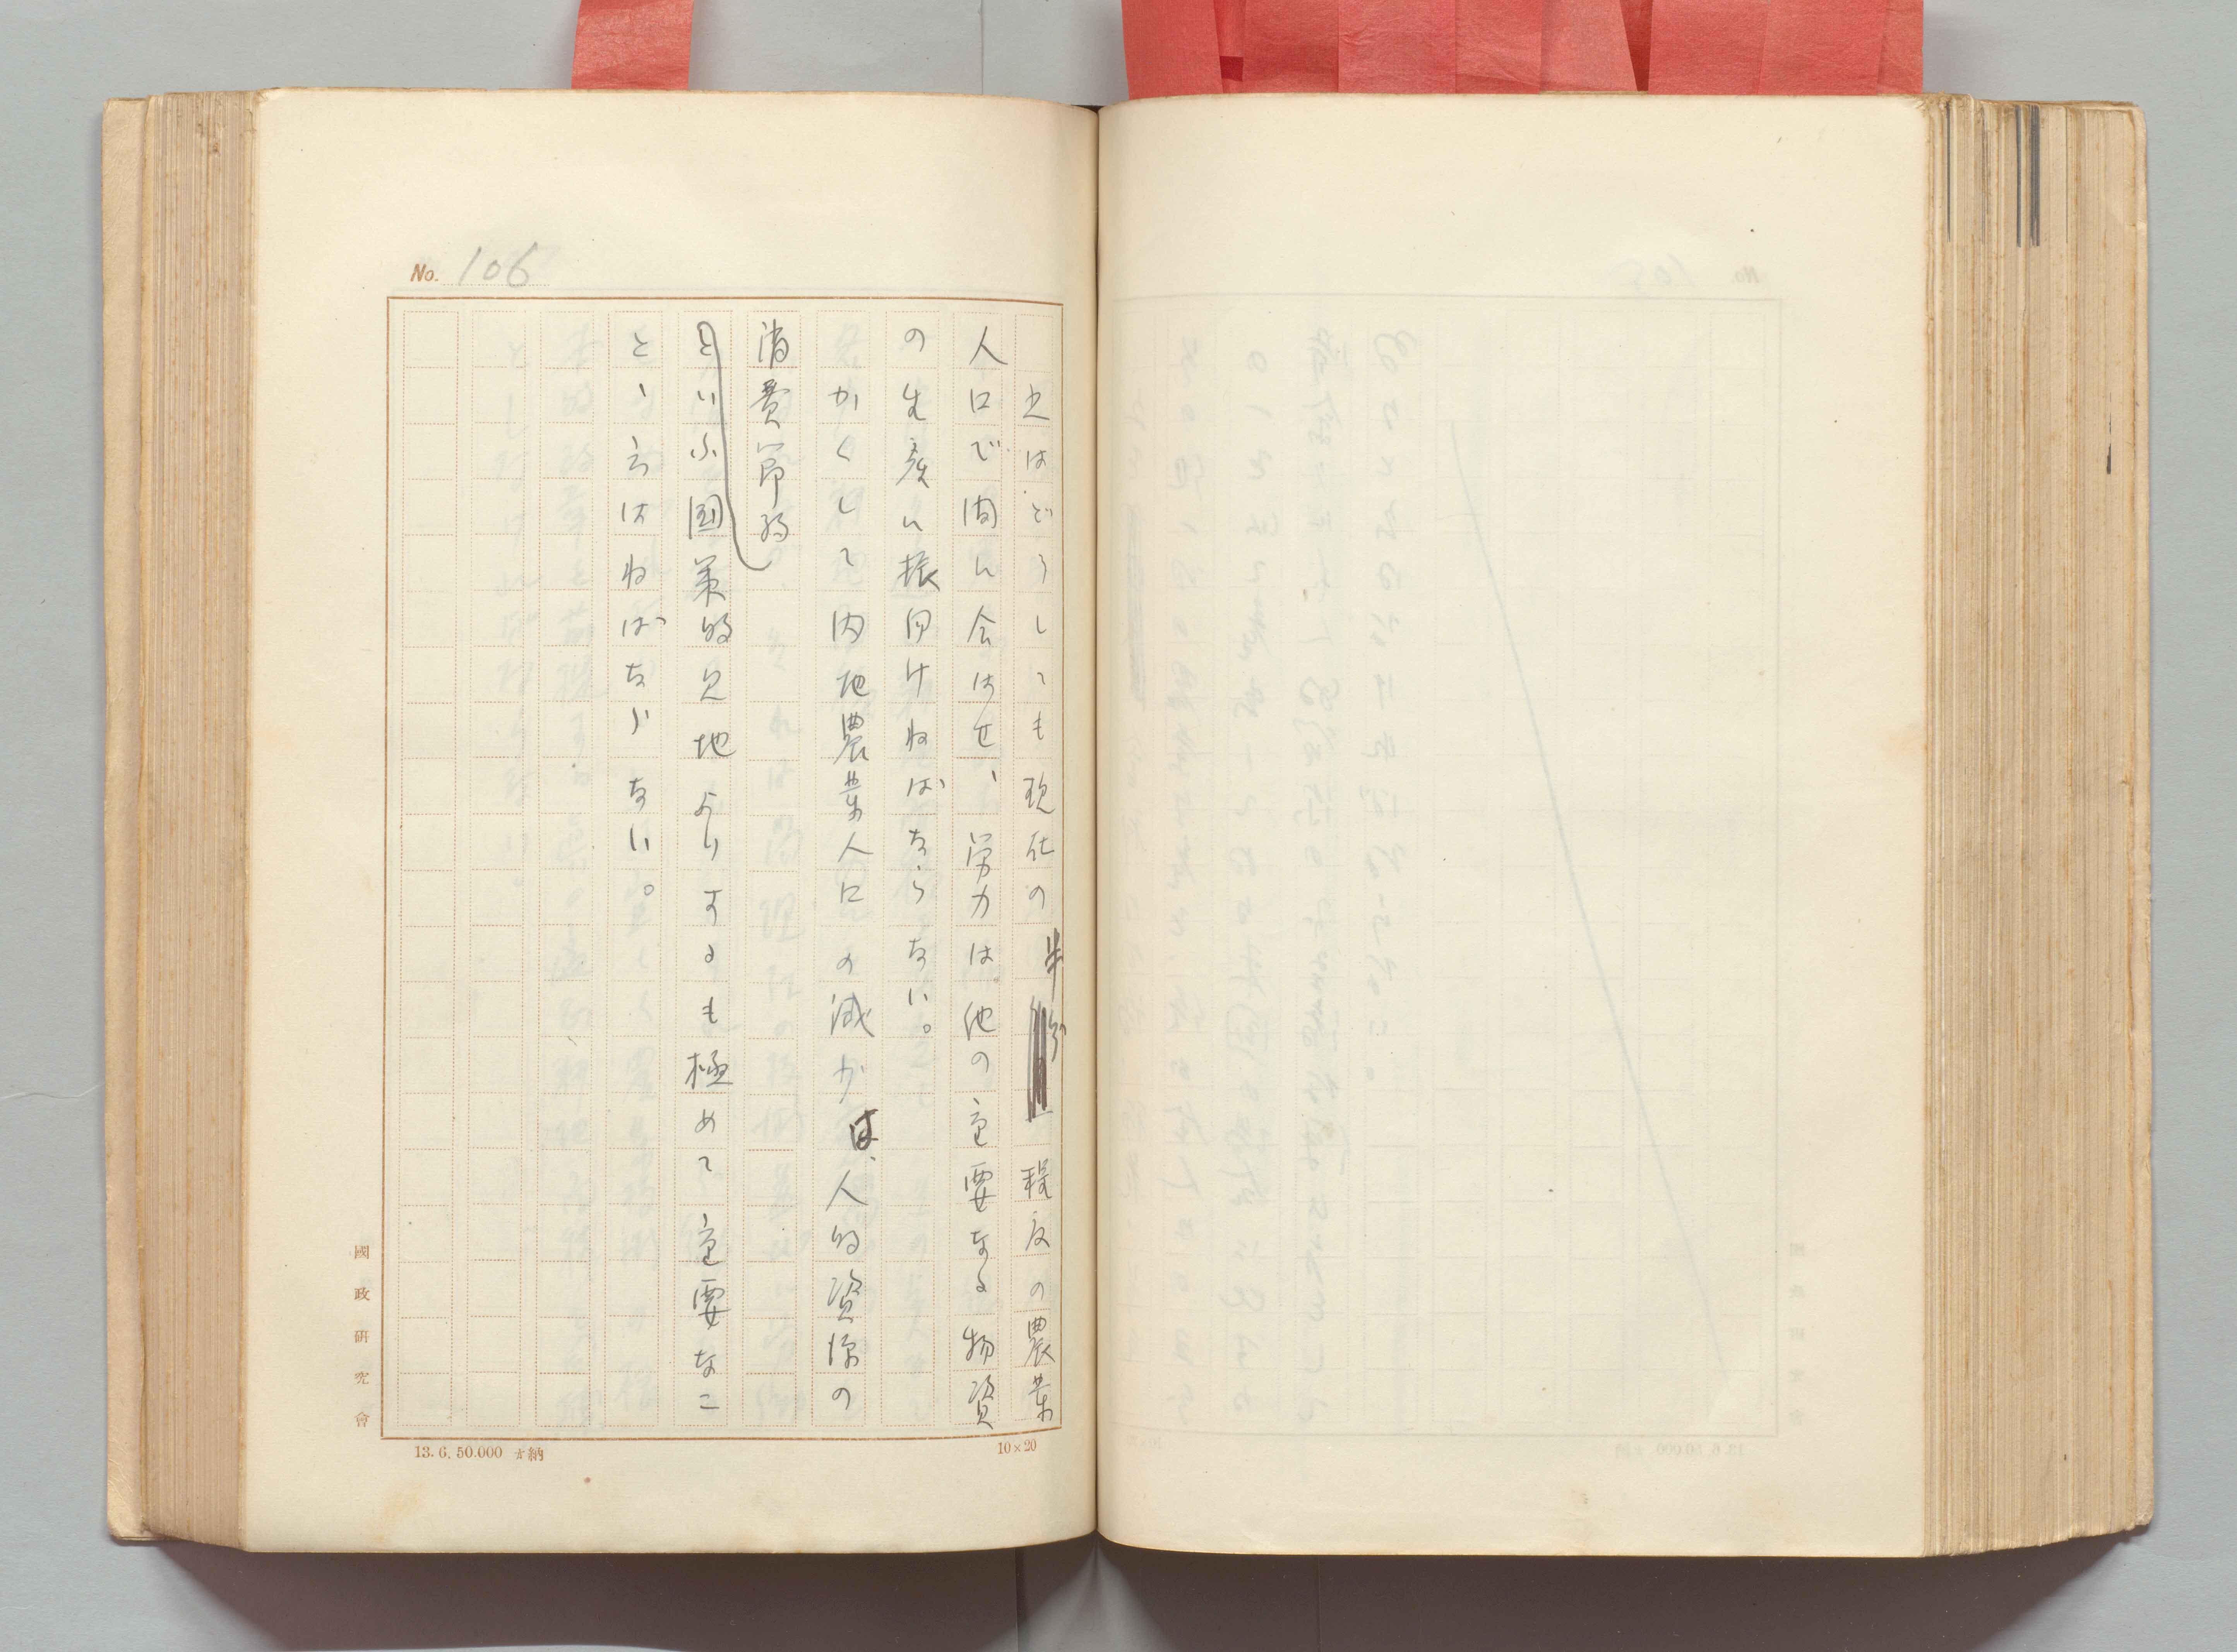 No. 106
之はどうしても現在の半分程度の農業
人口で間に会はせ、労力は他の重要なる物資
の生産に振向けねばならない。
かくして内地農業人口の減少は、人的資源の
消費節約
といふ國策的見地よりするも極めて重要なこ
とゝ言はねばならない。
國政研究會
13.6.50.000 納
10×20